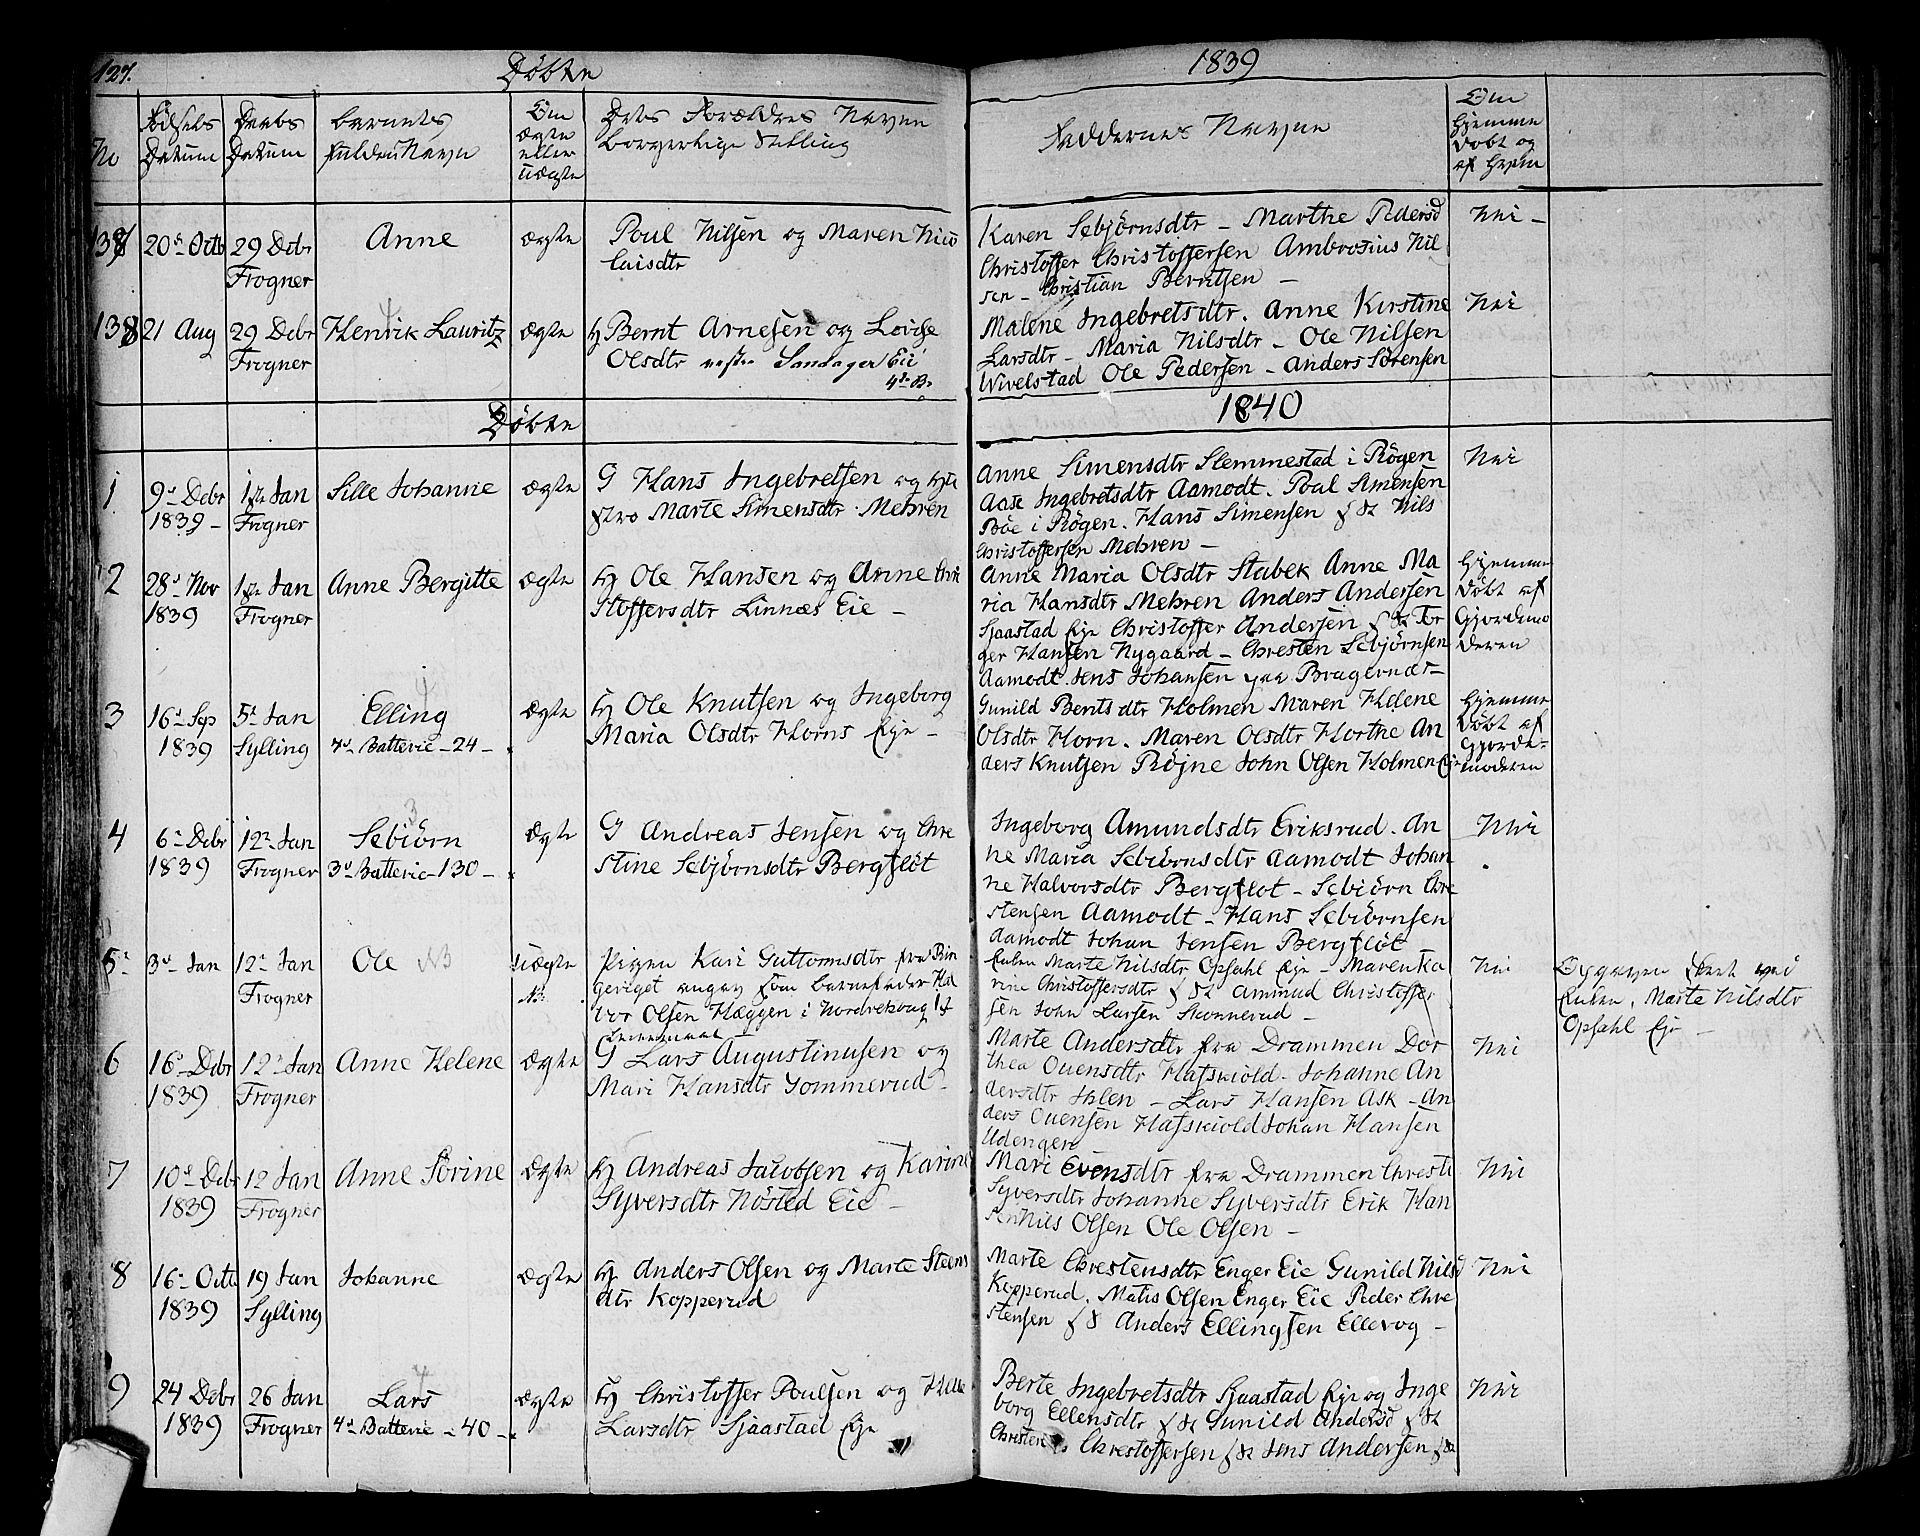 127.
Döbte
1839
No
Födsels Datum
Daabs Datum
Barnets fulde Navn
Om ægte eller uægte
Dets Forældres Navne borgerlige Stilling
Faddernes Navne
Om hjemme döbt og af hvem
137
20d Octb
29 Debr
Frogner
Anne
ægte
Poul Nilsen og Maren Nico
laisdtr
Karen Sebjörnsdtr - Marthe Pedersd
Christoffer Christoffersen Ambrosius Nil
sen - Christian Berntsen -
Nei -
138
21 Aug
29 Debr
Frogner
Henrik Lauritz
ægte
Hj Bernt Arnesen og Lovise
Olsdtr nestre Sandager Eie
4de B.
Malene Ingebretsdtr. Anne Kirstine
Larsdtr - Maria Nilsdtr - Ole Nilsen
Wivelstad Ole Pedersen - Anders Sörensen
Nei
Döbte
1840
1
9d Debr
1839 -
1ste Jan
Frogner
Sille Johanne
ægte
G Hans Ingebretsen og
Marte Simensdtr Mehren
Anne Simensdtr Slemmestad i Rögen
Aase Ingebretsdtr Aamodt. Poul Simensen
Böe i Rögen. Hans Simensen Nils
Christoffersen Mehren -
Nei
2
28d Nov
1839
1ste Jan
Frogner
Anne Bergitte
ægte
Hj Ole Hansen og Anne Chri
stoffersdtr Linnæs Eie -
Anne Maria Olsdtr Stabek Anne Ma
ria Hansdtr Mehren Anders Andersen
Sjaastad Eje Christoffer Andersen Tor
ger Hansen Nygaard - Christen Sebjörnsen
Aamodt. Jens Johansen paa Bragernæs -
Hjemme
döbt af
Gjordemo
deren
3
16d Sep
1839
5t Jan
Sylling
4
Elling
4d Batterie - 24 -
ægte
Hj Ole Knutsen og Ingeborg
Maria Olsdtr Horns Eje -
Gunild Berntsdtr Holmen Maren Helene
Olsdtr Horn. Maren Olsdtr Horthe An
ders Knutsen Röjne John Olsen Holmen Eje
Hjemme
döbt af
Gjorde-
moderen
4
6d Debr
1839
12d Jan
Frogner
3
Sebiörn
3d Batterie - 130 -
ægte
G Andreas Jensen og Chri
stine Sebjörnsdtr Bergflöt
Ingeborg Amundsdtr Eriksrud. An
ne Maria Sebiörnsdtr Aamodt Johan
ne Halvorsdtr Bergflot - Sebiörn Chri
stensen Aamodt - Hans Sebiörnsen
Aamodt Johan Jensen Bergflöt
Nei
5
3d Jan
12t Jan
Frogner
Ole NB
uægte
N.
Pigen Kari Guttormsdtr fra Rin
geriget angav som barnefader Hal
vor Olsen Hæggen i Nordrehoug 1st
Leiermaal -
Enken Marte Nilsdtr Opsahl Eje - Maren Ka
rine Christoffersdtr Ammud Christoffer
sen John Larsen Skonnerud -
Nei
Opgaven skeet ved
Enken Marte Nilsdtr
Opsahl Eje -
6
16d Debr
1839
12d Jan
Frogner
Anne Helene
ægte
G Lars Augustinusen og
Mari Hansdtr Sommerud -
Marte Andersdtr fra Drammen Dor
thea Ouensdtr Hafskiold - Johanne An
dersdtr Ihlen - Lars Hansen Ask - An
ders Ouensen Hafskiold Johan Hansen
Udengen
Nei
7
10d Debr
1839
12 Jan
Frogner
Anne Sörine
ægte
Hj Andreas Jacobsen og Karine
Syversdtr Nösted Eie -
Mari Evensdtr fra Drammen Christi
Syversdtr Johanne Syversdtr Erik Han
sen Nils Olsen Ole Olsen -
Nei
8
16d Octb
1839
19 Jan
Sylling
Johanne
ægte
Hj Anders Olsen og Marte Steens
dtr Kopperud
Marte Christensdtr Enger Eie Gunild Nilsd
Kopperud. Matis Olsen Enger Eie Peder Chri
stensen Anders Ellingsen Ellevog -
Nei
9
24 Debr
1839
26 Jan
Frogner
4
Lars
4d Batterie - 40 -
ægte
Hj Christoffer Poulsen og Helle
Larsdtr Sjaastad Eje
Berte Ingebretsdtr Sjaastad Eje og Inge
borg Ellensdtr Gunild Andersd
Christen Christoffersen Jens Andersen
Nei